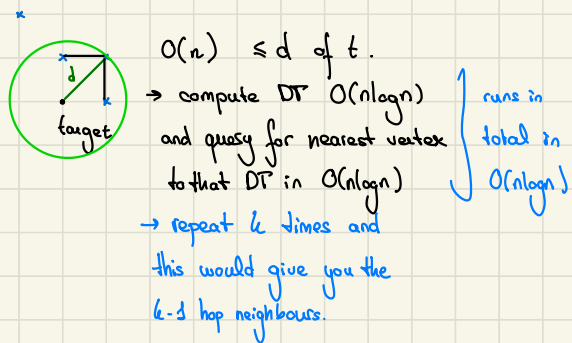 O(n) ≤ d of t.
d
target
→ compute DT O(nlogn)
and query for nearest vertex
to that DT in O(nlogn)
runs in
total in
O(nlogn)
→ repeat k times and
this would give you the
k-1 hop neighbours.